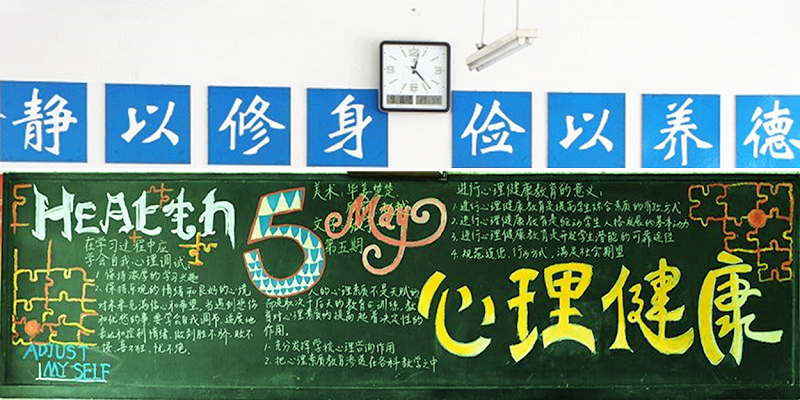 静以修身 俭以养德
HEALTH
5 May
美术:
第五期
在学习过程中应
学会自我心理调试
1.保持浓厚的学习兴趣
2.保持乐观的情绪和良好的心境
对未来充满信心和希望,当遇到悲伤
和忧愁的事要学会自我调节,适度地
表达和控制情绪,做到胜不骄,败不
馁,喜不狂,忧不绝.
ADJUST
MY SELF
人的心理素质不是天赋的
1.充分发挥学校心理咨询作用
2.把心理素质教育渗透在各科教学之中
进行心理健康教育的意义:
1.进行心理健康教育是提高学生综合素质的有效方式
2.进行心理健康教育是驱动学生人格发展的基本动力
3.进行心理健康教育是开发学生潜能的可靠途径
4.规范道德,行为方式,满足社会期望
心理健康